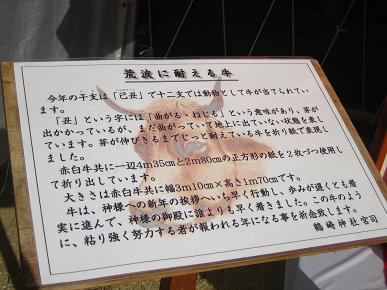 荒波に耐える牛
今年の干支は「己丑」で十二支では動物として牛が当てられてい
ます。
「丑」という字には「曲がる・ねじる」という意味があり、芽が
出かかっているが、まだ曲がっていて地上に出ていない状態を表し
ています。芽が伸びきるまでじっと耐えている牛を折り紙で表現し
ました。
赤白牛共に一辺4m35㎝と2m80㎝の正方形の紙を2枚づつ使用し
て折り出しています。
大きさは赤白牛共に幅3m10㎝×高さ1m70㎝です。
牛は、神様への新年の挨拶へいち早く行動し、歩みが遅くとも着
実に進んで、神様の御殿に誰よりも早く着きました。この牛のよう
に、粘り強く努力する者が報われる年になる事を祈念致します。
鶴崎神社宮司